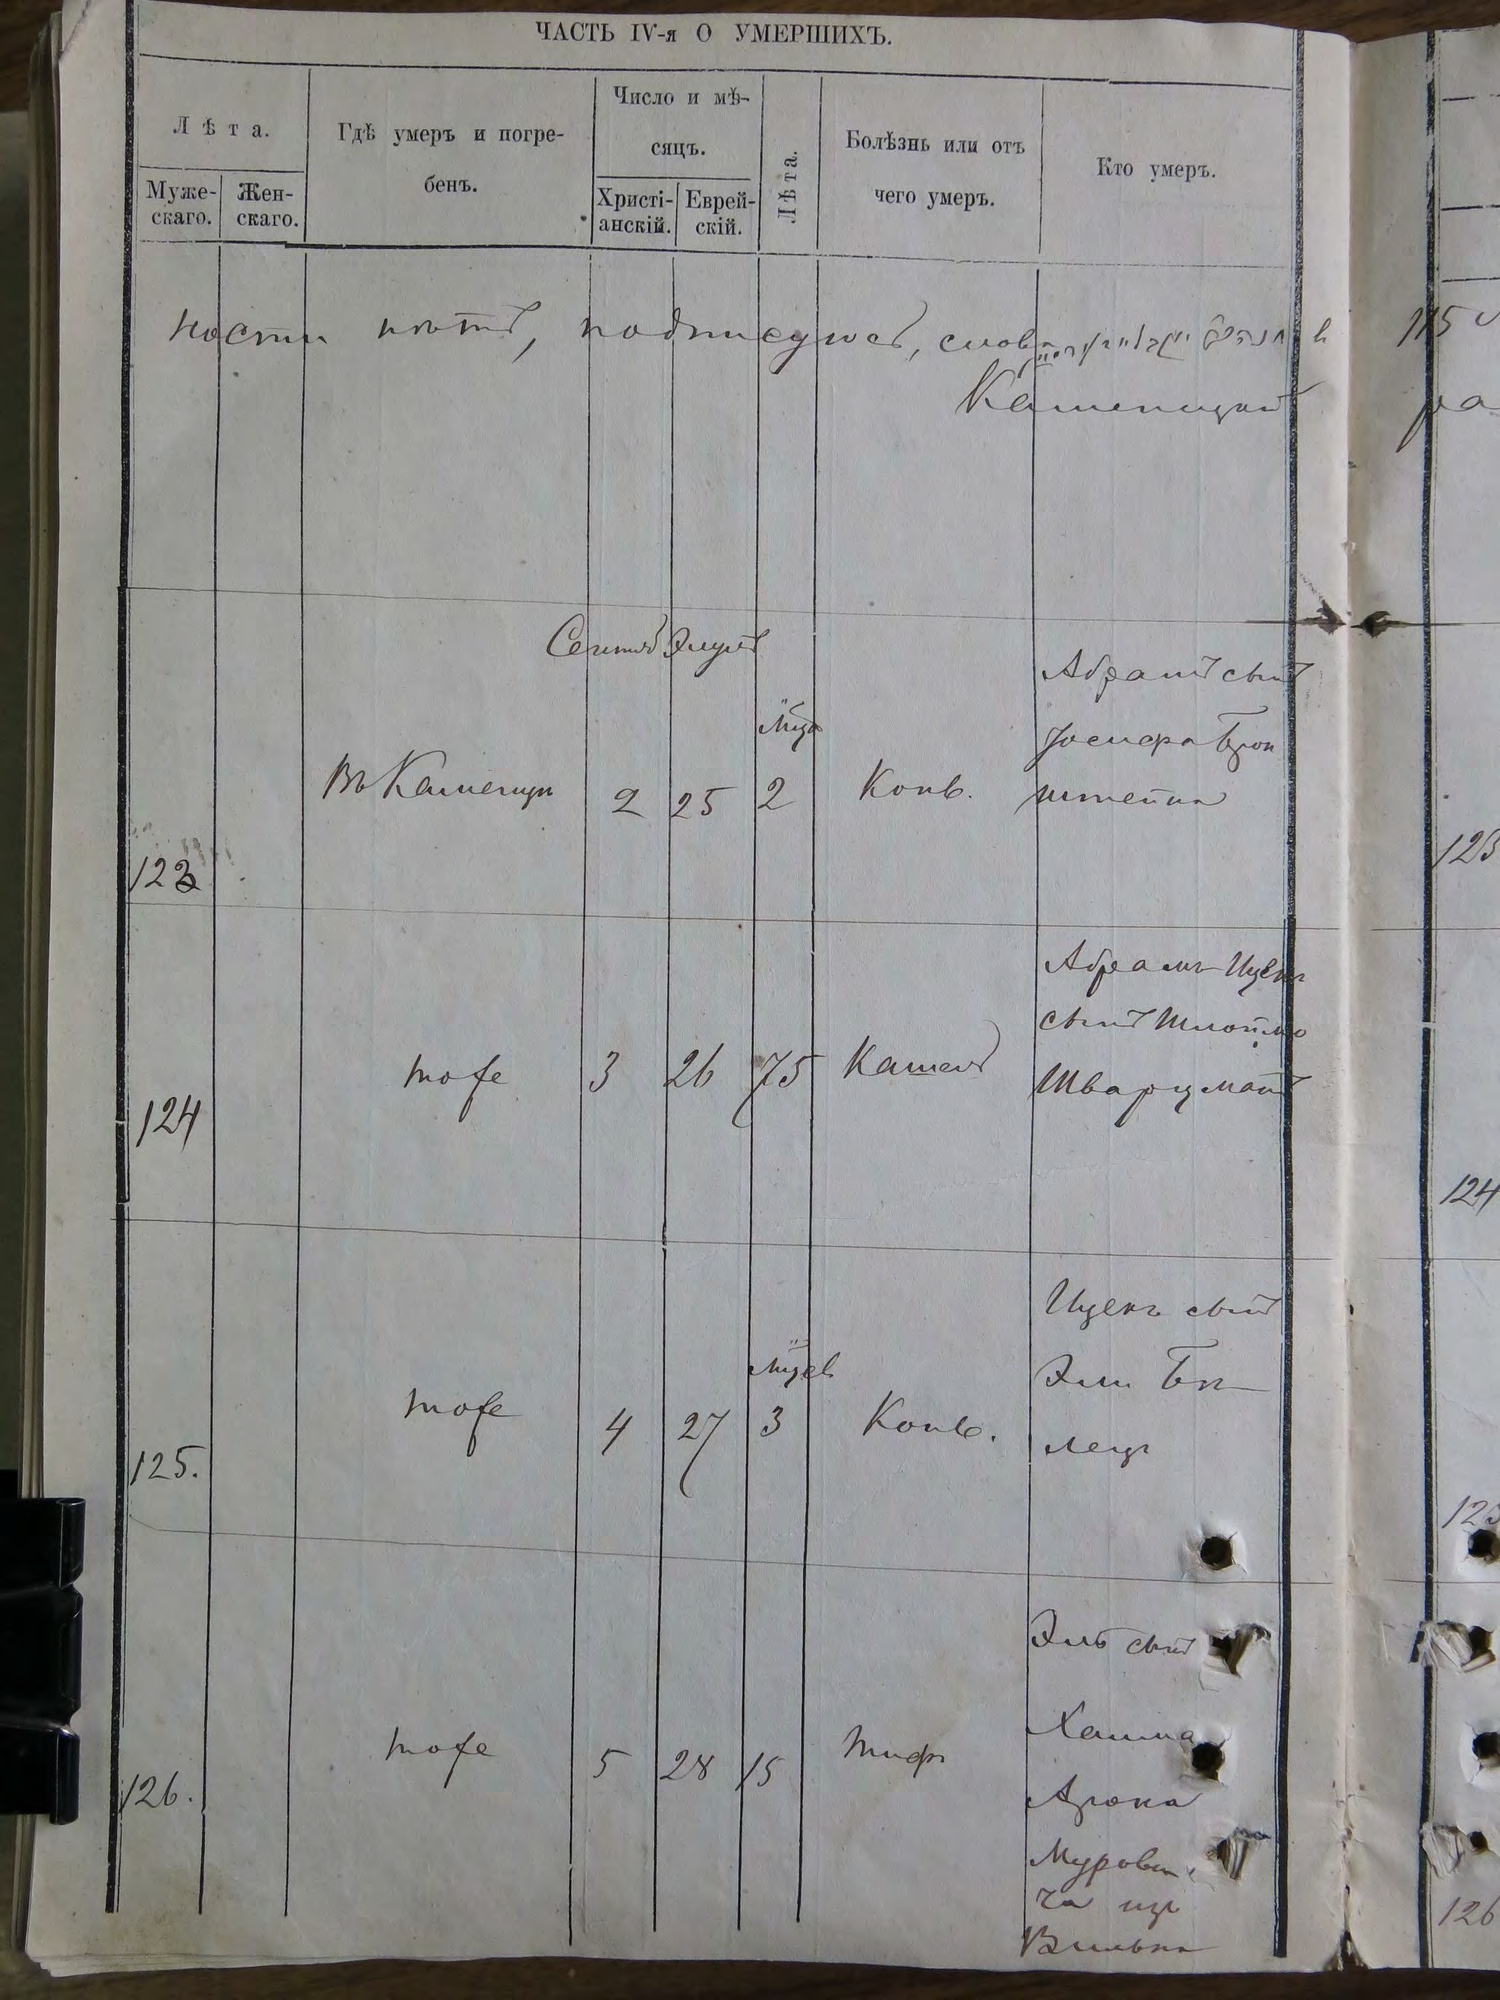 ЧАСТЬ IV-я О УМЕРШИХЪ.
Лѣта.
Муже-
скаго.
Жен-
скаго.
Гдѣ умеръ и погре-
бенъ.
Число и мѣ-
сяцъ.
Христі-
анскій.
Еврей-
скій.
Лѣта.
Болѣзнь или отъ
чего умеръ.
Кто умеръ.
ности нѣтъ, подписуюсь, слова
115
Каменецкій
ра
Сентяб Элулъ
123
Въ Каменцѣ
2
25
2
Конв.
Абрамъ сынъ
Іосифа Брон
штейна
123
124
тоже
3
26
75
Кашель
Абрамъ Ицекъ
сынъ Шлоймо
Шварцманъ
124
125.
тоже
4
27
3
Конв.
Ицекъ сынъ
Эли
лецъ
125
126.
тоже
5
28
15
тифъ
Эль сынъ
Хаима
Арона
Мурови
ча изъ
126